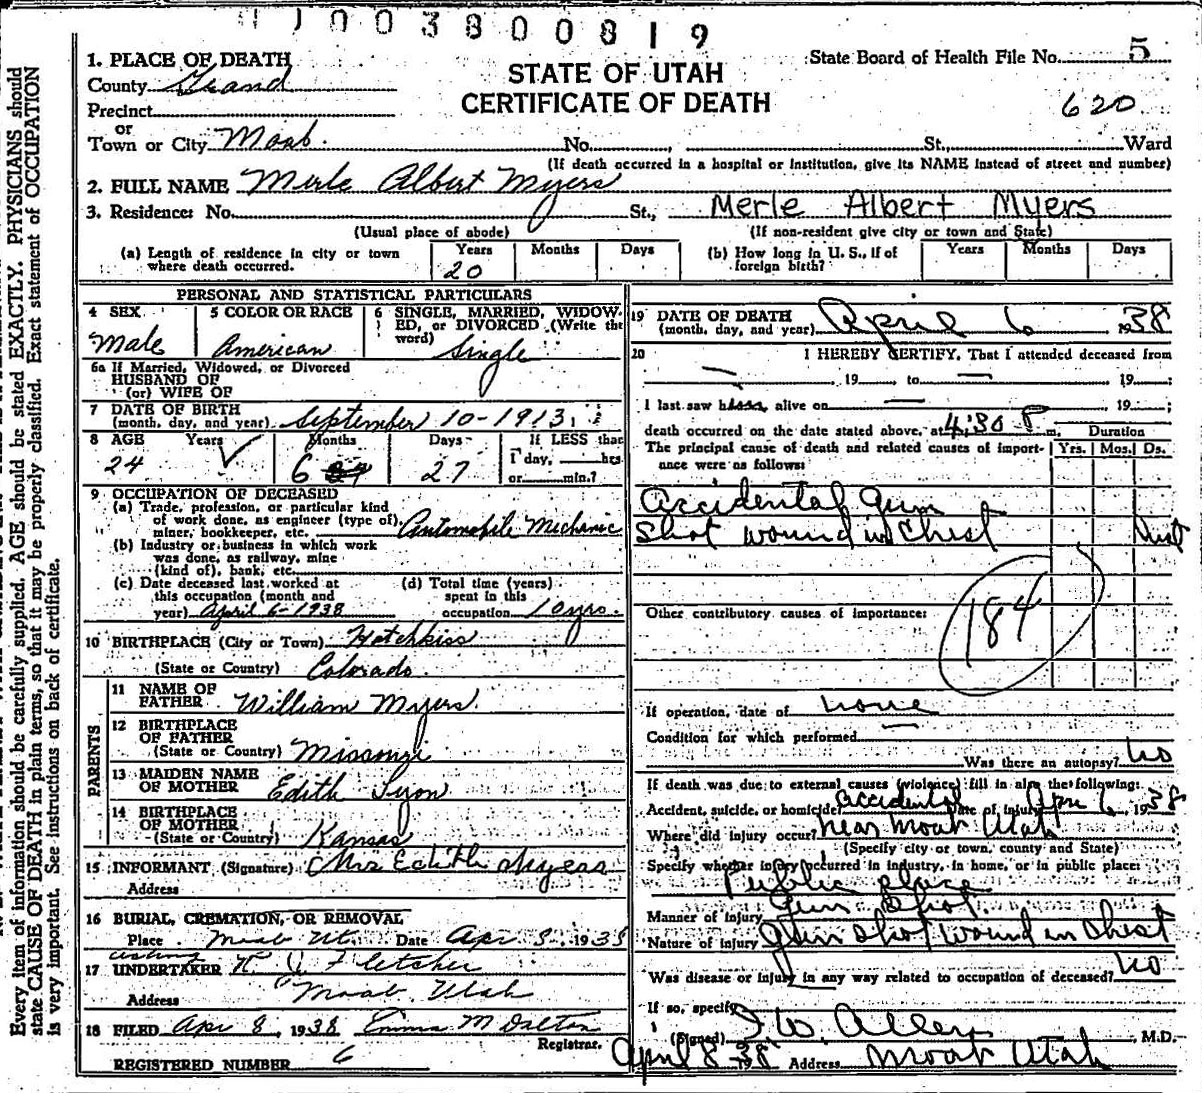 1003800819
1. PLACE OF DEATH
State Board of Health File No. 5
County Grand
STATE OF UTAH
CERTIFICATE OF DEATH
620
Precinct
or
Town or City Moab. No. St., Ward
(If death occurred in a hospital or institution, give its NAME instead of street and number)
2. FULL NAME Merle Albert Myers
3. Residence: No. St., Merle Albert Myers
(Usual place of abode) (If non-resident give city or town and State)
(a) Length of residence in city or town where death occurred. Years 20 Months Days
(b) How long in U. S., if of foreign birth? Years Months Days
PERSONAL AND STATISTICAL PARTICULARS
4 SEX Male
5 COLOR OR RACE American
6 SINGLE, MARRIED, WIDOWED, or DIVORCED (Write the word) Single
6a If Married, Widowed, or Divorced
HUSBAND OF
(or) WIFE OF
7 DATE OF BIRTH
(month, day, and year) September 10-1913
8 AGE Years Months Days If LESS than
24 6 27 1 day, hrs.
or min.?
9 OCCUPATION OF DECEASED
(a) Trade, profession, or particular kind
of work done, as engineer (type of), Automobile Mechanic
miner, bookkeeper, etc.
(b) Industry or business in which work
was done, as railway, mine
(kind of), bank, etc.
(c) Date deceased last worked at
this occupation (month and
year) April 6-1938
(d) Total time (years)
spent in this
occupation 10 yrs.
10 BIRTHPLACE (City or Town) Hotchkiss
(State or Country) Colorado.
PARENTS
11 NAME OF
FATHER William Myers.
12 BIRTHPLACE
OF FATHER
(State or Country) Missouri
13 MAIDEN NAME
OF MOTHER Edith
14 BIRTHPLACE
OF MOTHER
(State or Country) Kansas
15 INFORMANT (Signature) Mrs Edith Myers
Address
16 BURIAL, CREMATION, OR REMOVAL
Place Moab Ut. Date Apr 8, 1938
17 UNDERTAKER J. Fletcher
Address Moab, Utah
18 FILED Apr 8, 1938 Emma M Dalton
Registrar.
REGISTERED NUMBER 6
19 DATE OF DEATH
(month, day, and year) April 6 1938
20 I HEREBY CERTIFY, That I attended deceased from
, 19 , to , 19 ;
I last saw him alive on , 19 ;
death occurred on the date stated above, at 4:30 P m.
Duration
The principal cause of death and related causes of importance were as follows:
Yrs. Mos. Ds.
Accidental Gun
Shot wound in Chest
Other contributory causes of importance:
184
If operation, date of none
Condition for which performed
Was there an autopsy? no
If death was due to external causes (violence) fill in also the following:
Accident, suicide, or homicide accidental Date of injury Apr 6, 1938
Where did injury occur? near Moab Utah
(Specify city or town, county and State)
Specify whether injury occurred in industry, in home, or in public place:
Public place
Manner of injury Gun Shot.
Nature of injury Gun Shot wound in Chest
Was disease or injury in any way related to occupation of deceased? no
If so, specify
(Signed) I. W. Allen, M.D.
April 8 1938 Address Moab Utah
Every item of information should be carefully supplied. AGE should be stated EXACTLY. PHYSICIANS should
state CAUSE OF DEATH in plain terms, so that it may be properly classified. Exact statement of OCCUPATION
is very important. See instructions on back of certificate.